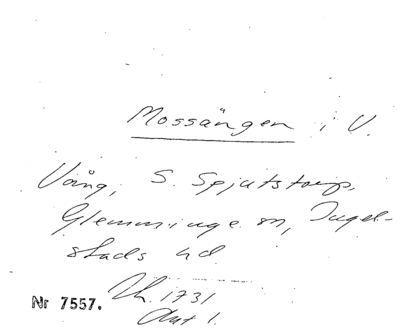 Mossängen i V.
Vång, S. Spjutstorp,
Glemminge sn, Ingel-
stads hd
Nr 7557. Lh. 1731
Akt 1.